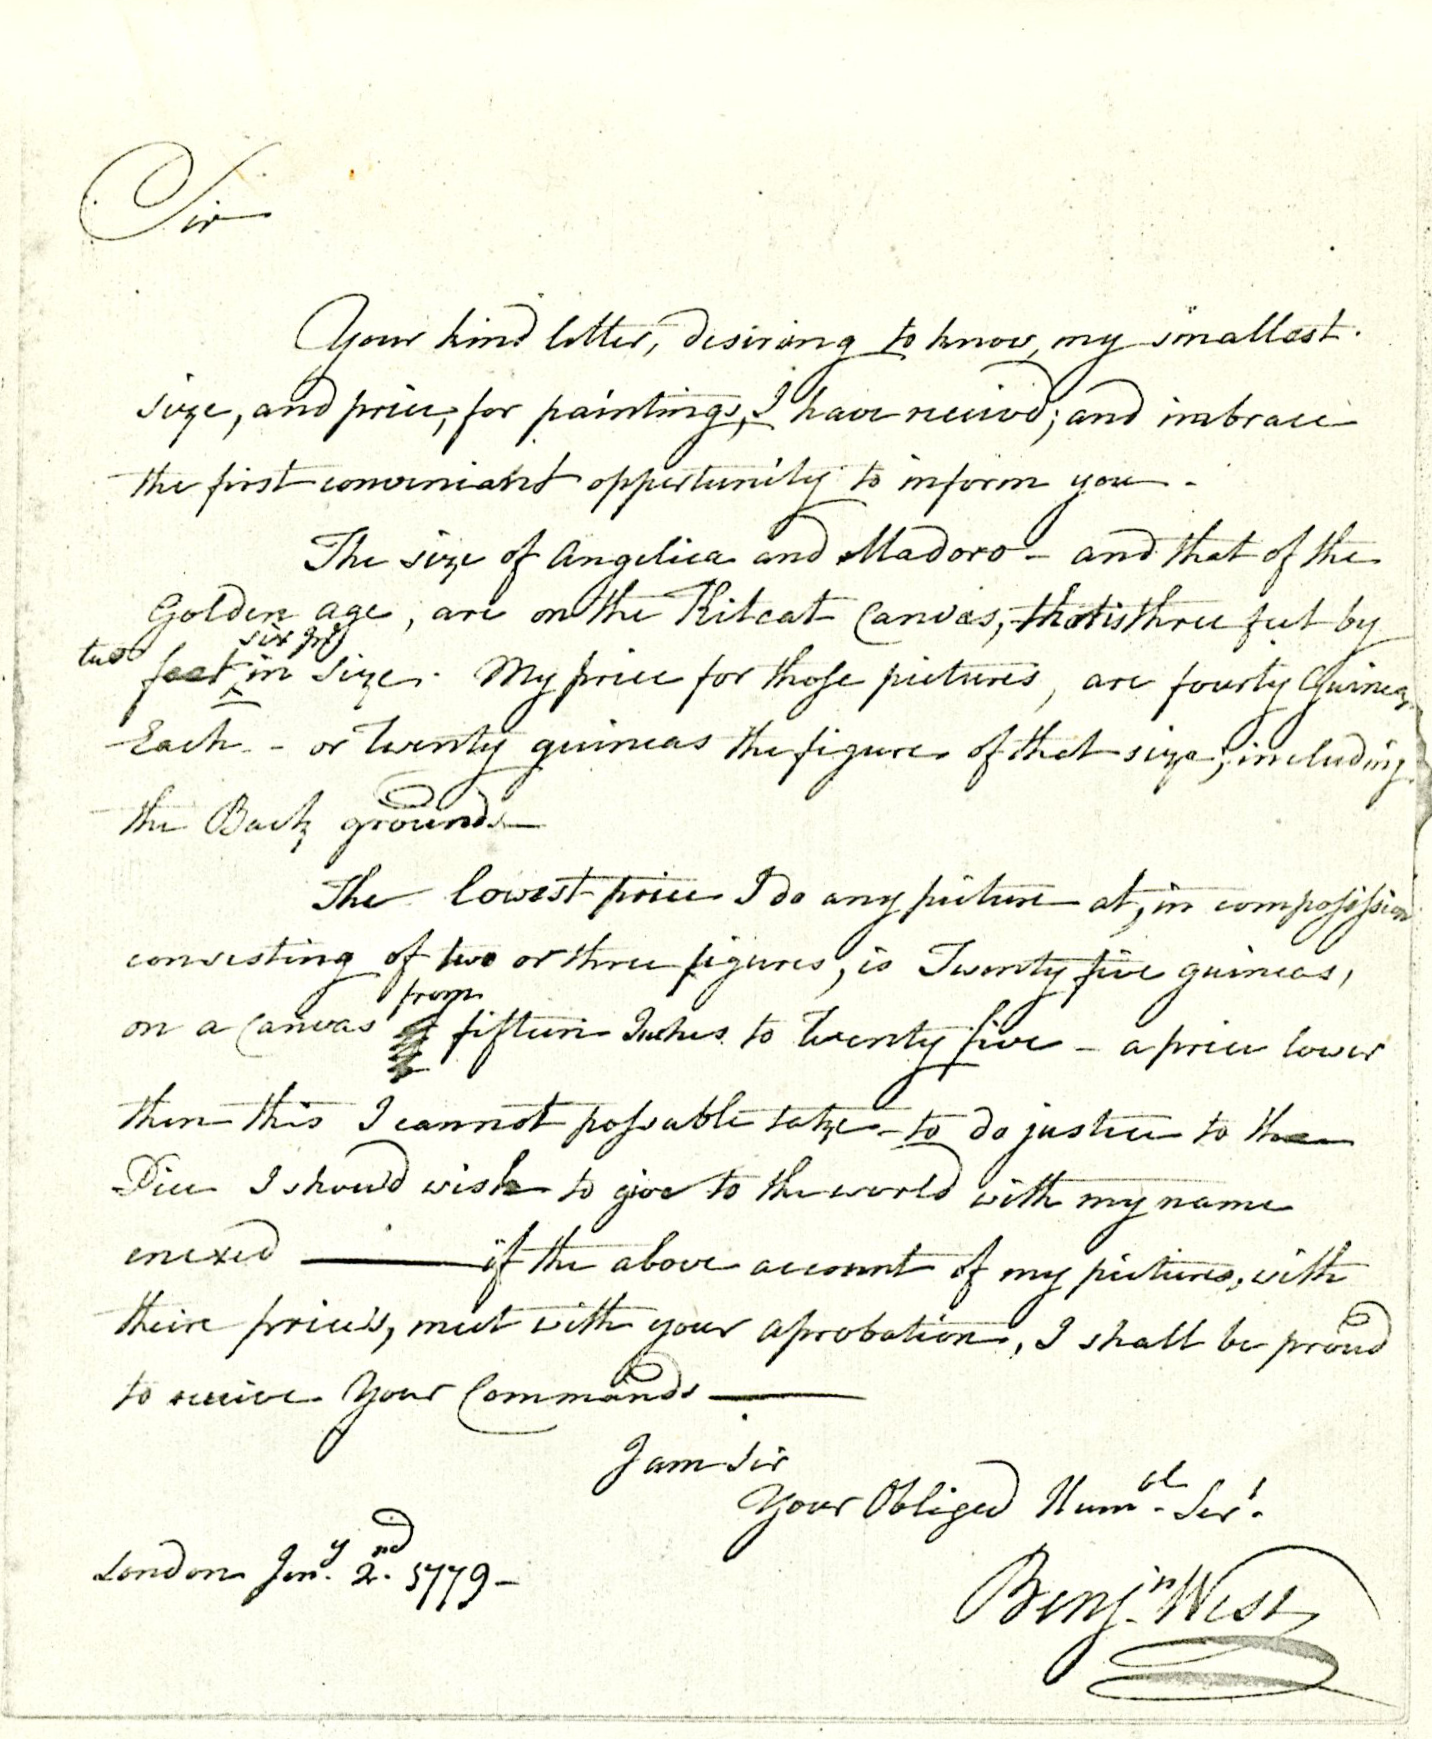 Sir
Your kind letter, desiring to know, my smallest
size, and price, for paintings, I have receivd; and imbrace
the first conveniant oppertunity to inform you -
The size of Angelica and Madoro - and that of the
Golden age, are on the Kitcat Canvas, that is three feet by
two feet six in size. My price for those pictures, are fourty Guineas
Each - or Twenty guineas the figure of that size; including
the Back grounds
The lowest price I do any picture at, in composission
concisting of two or three figures, is Twenty five guineas,
on a Canvas from fifteen Inches to Twenty five - a price lower
then this I cannot possable take - to do justice to the
Piece I should wish to give to the world with my name
enexed — if the above account of my pictures, with
theire price's, meet with your aprobation, I shall be proud
to receive Your Commands —
I am Sir
Your Obliged Humbl. Sert.
London Jany. 2nd. 1779 -
Benjn. West